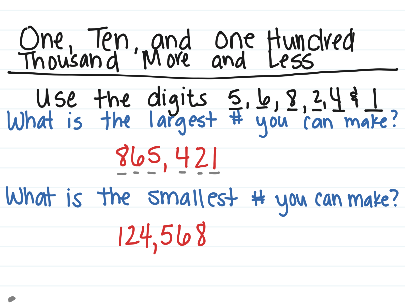 One, Ten, and One Hundred
Thousand More and Less
Use the digits 5, 6, 8, 2, 4 & 1
What is the largest # you can make?
865,421
What is the smallest # you can make?
124,568